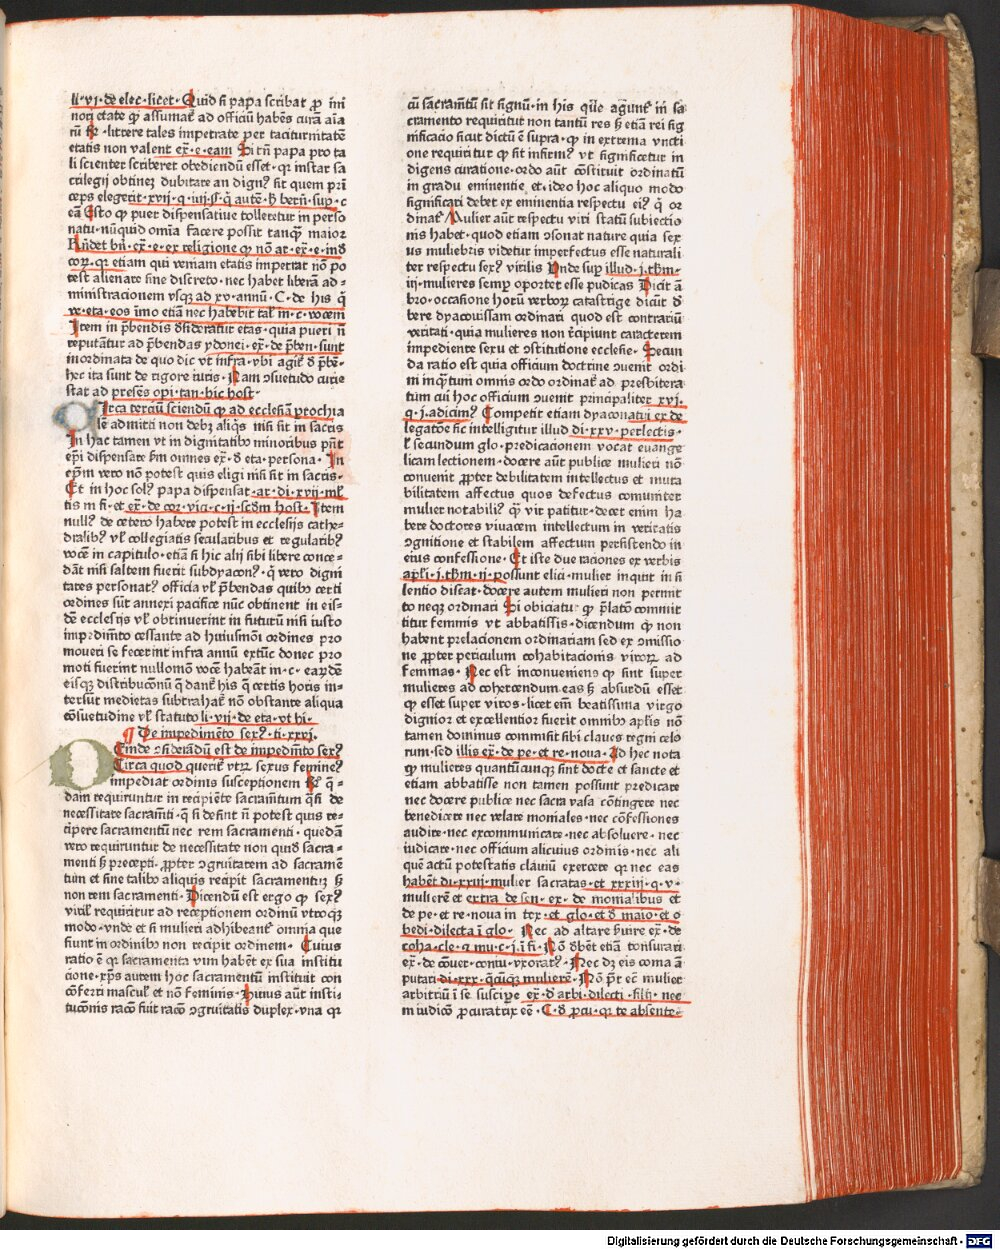 li·vj·de elec·licet· Quid si papa scribat ꝓ mi
nori etate qͥ assumat̉ ad officiū habēs curā aīa
rū Rͬ ·littere tales impetrate per taciturnitatē
etatis non valent ex̄·e·eam Si tn̄ papa pro ta
li scienter scriberet obediendū esset·qꝛ instar sa
crilegij obtinet dubitare an dignꝰ sit quem prī
ceps elegerit·xvij·q·iiij·§·q̄ autē·h̄ bern̄·sup̄·c
eā Esto qͥ puer dispensatiue tolleretur in perso
natu·nūquid om̄ia facere possit tanqͣꝫ maior
Rn̄det bn̄·ex̄·e·ex religione qͥ nō ar·ex̄·e·ind
corꝝ·qꝛ etiam qui veniam etatis impetrat nō po
test alienare sine discreto·nec habet liberā ad⸗
ministracionem vsqꝫ ad xv·annū·C·de his q̄
ve·eta·eos īmo etiā nec habebit taƚ m·c·vocem
Item in p̄bendis ↄsideratur etas·quia pueri nō
reputātur ad p̄bendas ydonei·ex̄·de p̄ben·sunt
inordinata de quo dic vt infra·vbi agit̉ ď p̄bē⸗
hec ita sunt de rigore iuris·Nam ↄsuetudo curie
stat ad presēs opi·tan·hic host·
Circa terciū sciendū qͥ ad ecclesiā ꝑtochia
lē admitti non debꝫ aliqͥs nisi sit in sacris
In hac tamen vt in dignitatibꝰ minoribus pn̄t
ep̄i dispensare ẜm omnes ex̄·ď eta·persona·In
ep̄m vero nō potest quis eligi nisi sit in sacris·
Et in hoc solꝰ papa dispensat·ar·di·xvij·mƚ
tis in fi·et ex̄·de cor·vici·c·ij·scd̄m host·Item
nullꝰ de cetero habere potest in ecclesijs cathe⸗
dralibꝰ vƚ collegiatis secularibus et regularibꝰ
vocē in capitulo·etiā si hic alij sibi libere conce⸗
dāt nisi saltem fuerit subdyaconꝰ·q̄ vero digni
tates personatꝰ officia vƚ p̄bendas quibꝰ certi
ordines sūt annexi pacifice nūc obtinent in eis⸗
dē ecclesijs vƚ obtinuerint in futurū nisi iusto
impedim̄to cessante ad huiusmōi ordines pro
moueri se fecerint infra annū extūc donec pro
moti fuerint nullomō vocē habeāt in·c·earūdē
eisqꝫ distribucōnū q̄ dant̉ his q̄ certis horis in⸗
tersūt medietas subtrahat̉ nō obstante aliqua
cōsuetudine vƚ statuto li·vij·de eta·vt hi·
¶ De impedimēto sexꝰ·ti·xxvi·
Deinde ↄsiderādū est de impedim̄to sexꝰ
Circa quod querit̉ vtꝝ sexus feminēꝰ
impediat ordinis susceptionem Rͬ q̄⸗
dam requiruntur in recipiēte sacram̄tum q̄si de
necessitate sacram̄ti·q̄ si desint nō potest quis re⸗
cipere sacramentū nec rem sacramenti·quedā
vero requiruntur de necessitate non quid̄ sacra⸗
menti ẜ precepti·ꝓpter ↄgruitatem ad sacramē
tum et sine talibꝰ aliquis recipit sacramentū ẜ
non rem sacramenti·Dicendū est ergo qͥ sexꝰ
viriƚ requiritur ad receptionem ordinū vtroqꝫ
modo·vnde et si mulieri adhibeant̉ omnia que
fiunt in ordinibꝰ non recipit ordinem·Cuius
ratio ē qꝛ sacramenta vim habēt ex sua institu
cione·xp̄s autem hoc sacramentū instituit con
cōferri masculꝭ et nō feminis·Huius aūt insti⸗
tucōnis racō fuit racō ↄgruitatis duplex·vna qꝛ
cū sacram̄tū sit signū·in his que agunt̉ in sa
cramento requiritur non tantū res ẜ etiā rei sig
nificacio sicut dictū ē supra·qͥ in extrema vncti
one requiritur qͥ sit infirmꝰ vt significetur in
digens curatione·ordo aūt cōstituit ordinatū
in gradu eminentie·et ideo hoc aliquo modo
significari debet ex eminentia respectu eiꝰ q̄ or
dinat̉ Mulier aūt respectu viri statū subiectio
nis habet·quod etiam ↄsonat nature quia sex
us muliebris videtur imperfectus esse naturali
ter respectu sexꝰ virilis Vnde suꝑ illud·j·thm·
iij·mulieres semꝑ oportet esse pudicas Dicit ā
bro·occasione horū verboꝝ catafrige dicūt ď
bere dyacouissam ordinari quod est contrariū
veritati·quia mulieres non recipiunt caracterem
impediente sexu et ↄstitutione ecclesie·Secun
da ratio est quia officium doctrine ↄuenit ordi
ni inqͣꝫtum omnis ordo ordinat̉ ad presbitera
tum cui hoc officium ↄuenit principaliter xvj·
q·j·adicimꝰ Competit etiam dyaconatui ex̄ de
legatōne sic intelligitur illud di·xxv·perlectis·
ƚ secundum glo·predicacionem vocat euange
licam lectionem·docere aūt publice mulieri nō
conuenit ꝓpter debilitatem intellectus et muta
bilitatem affectus quos defectus comuniter
mulier notabiliꝰ qͣꝫ vir patitur·decet enim ha
bere doctores viuacem intellectum in veritatis
ↄgnitione et stabilem affectum persistendo in
eius confessione·Et iste due raciones ex verbis
apƚi·j·thm·ij·possunt elici·mulier inquit in si
lentio discat·docere autem mulieri non permit
to neqꝫ ordinari Si obiciatur qͥ p̄latō committ
titur feminis vt abbatissis·dicendum qͥ non
habent prelacionem ordinariam sed ex ↄmissio
ne ꝓpter periculum cohabitacionis viroꝝ ad
feminas·Nec est inconueniens qͥ sint super
mulieres ad cohercendum eas ẜ absurdū esset
qͥ esset super viros·licet em̄ beatissima virgo
dignior et excellentior fuerit omnibꝰ apƚis nō
tamen dominus commisit sibi claues regni celo
rum·sed illis ex̄·de pe·et re·noua·Ad hec nota
qͥ mulieres quantūcunqꝫ sint docte et sancte et
etiam abbatisse non tamen possunt predicare
nec docere publice nec sacra vasa cōtingere nec
benedicere nec velare moniales·nec cōfessiones
audire·nec excommunicare·nec absoluere·nec
iudicare·nec officium alicuius ordinis·nec ali
que actū potestatis clauiū exercere qꝛ nec eas
habēt di·xxiij·mulier sacratas·et xxxiij·q·v·
mulierē et extra de sen·ex·de monialibus et
de pe·et re·noua in tex·et glo·et ď maio·et o
bedi·dilecta ī glo·Nec ad altare ẜuire ex̄·de
coha·cle·q̄ mu·c·j·ī fi·Nō d̄bēt etiā tonsurari
ex̄·de cōuer·coniu·vxoratꝰ·Nec dꝫ eis coma ā
putari·di·xxx·q̄cūqꝫ mulierē·Nō pt̄ ec̄ mulier
arbitriū ī se suscipe ex̄·ď arbi·dilecti·filij·nec
in iudicō ꝓcuratrix eē·C·ď ꝓcu·qꝛ te absente·
Digitalisierung gefördert durch die Deutsche Forschungsgemeinschaft - DFG